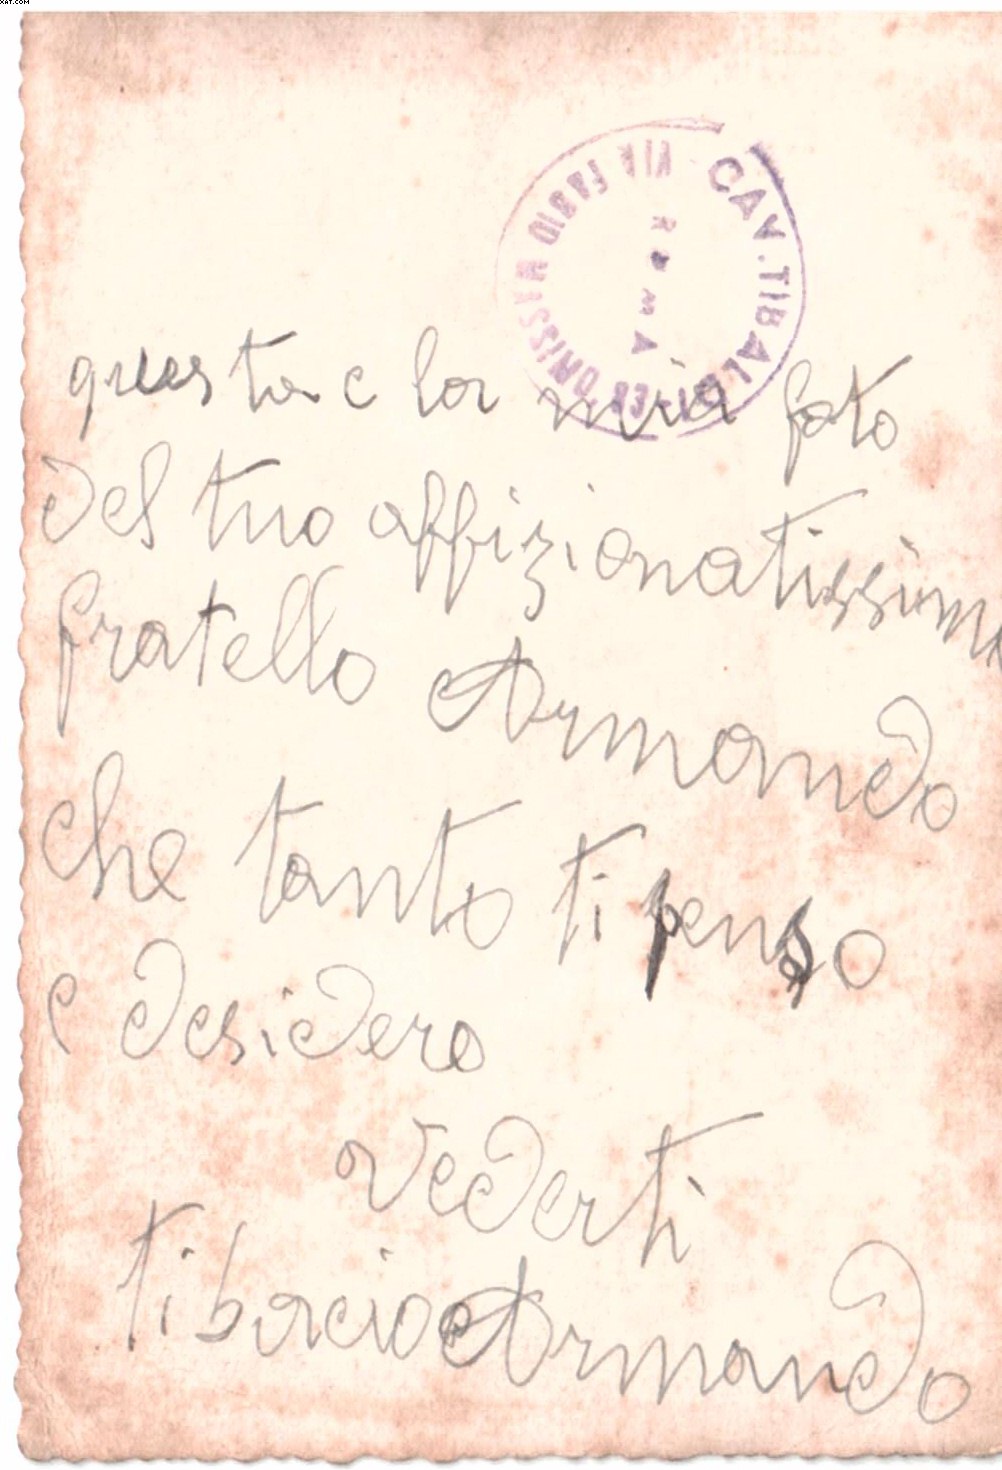 XAT.COM
CAV. TIBALDI
VIA FABIO MASSIMO
ROMA
questa e la mia foto
del tuo affizionatissimo
fratello Armando
che tanto ti penso
e desidero
vederti
ti bacio Armando